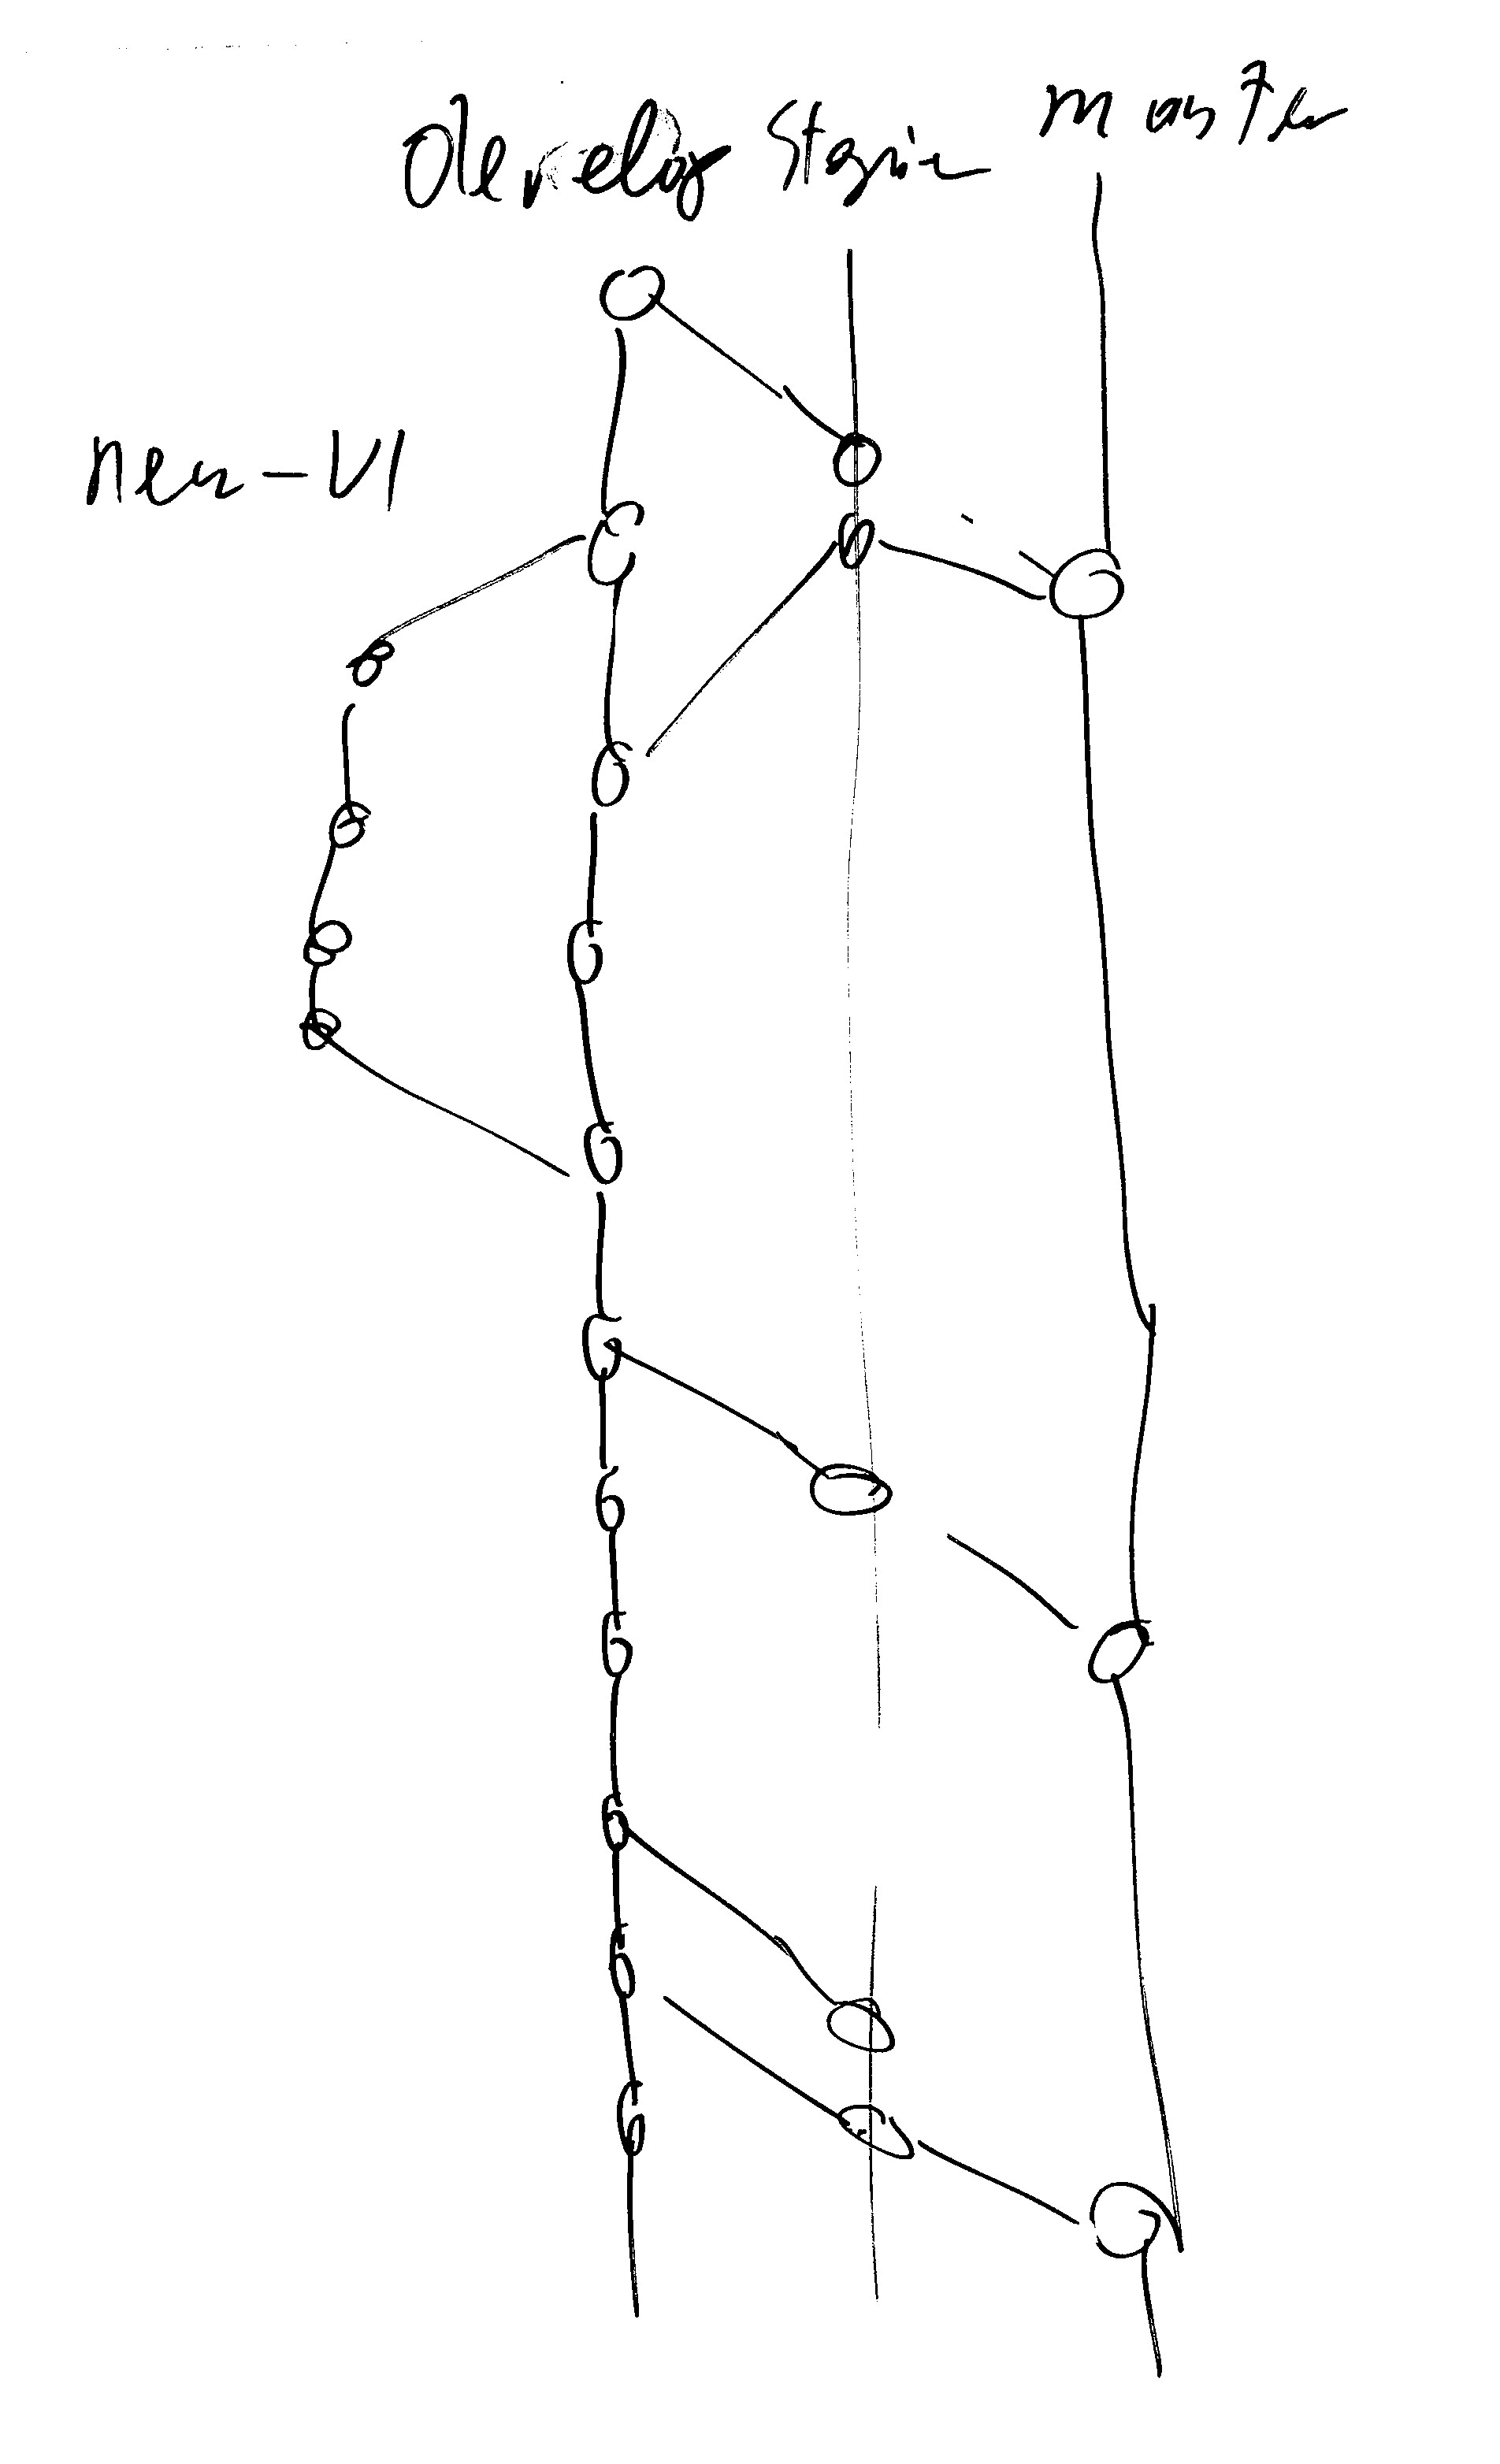 develop Stagin master
new-UI